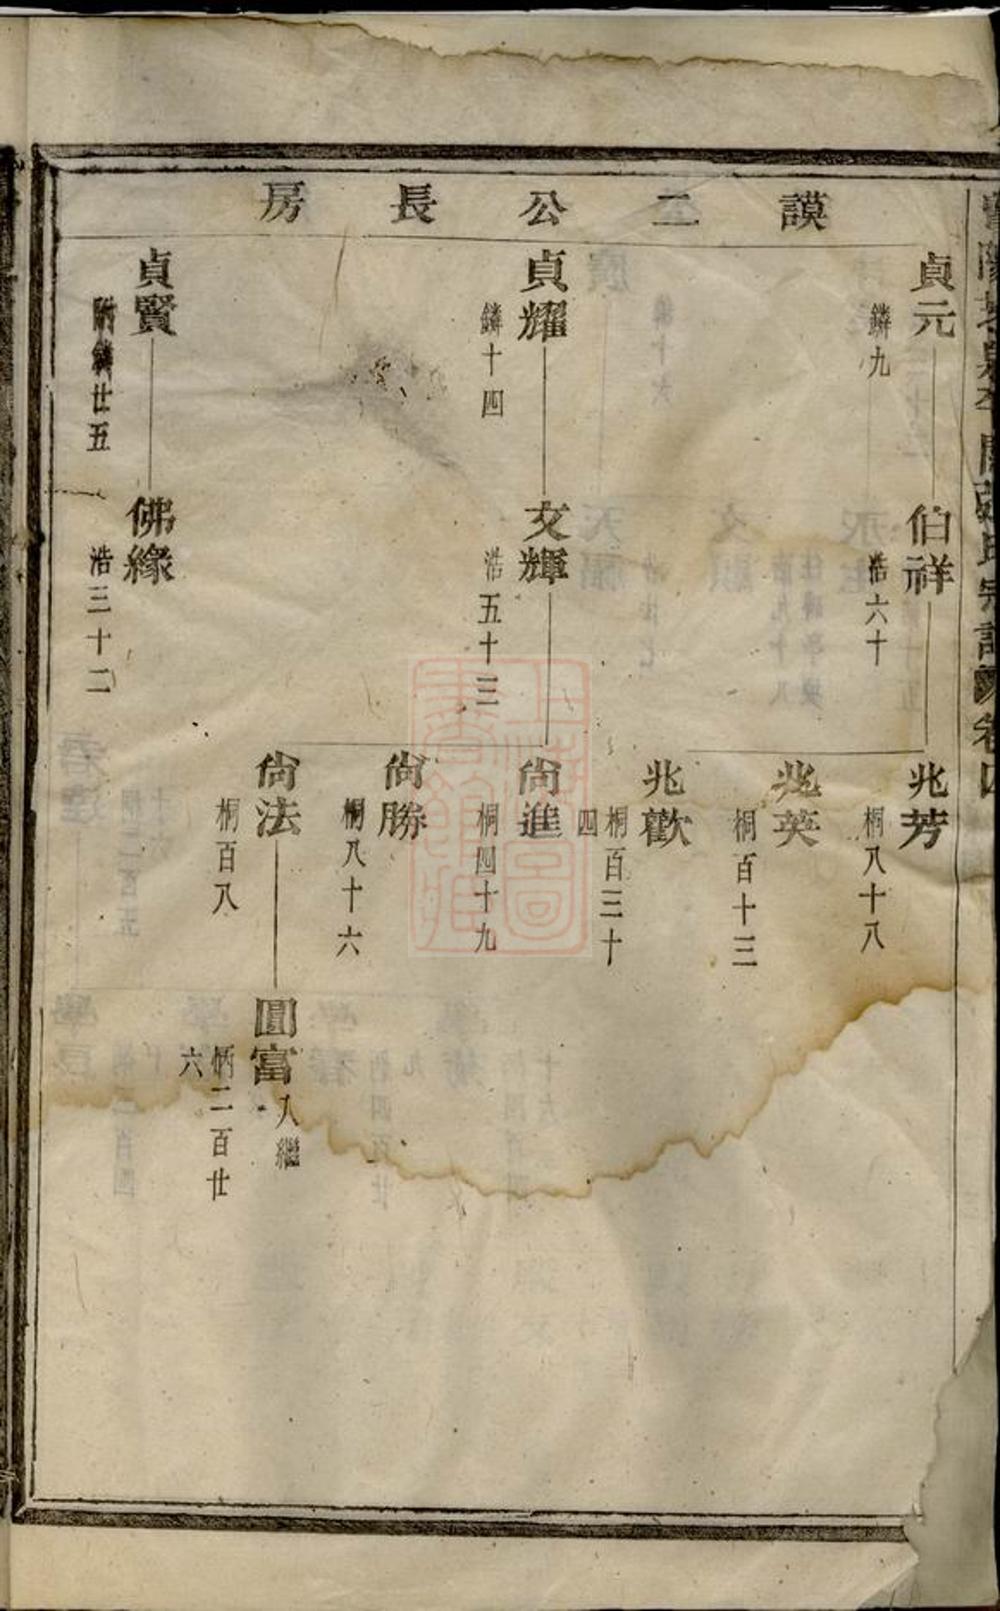 謨二公長房
貞元
鏻九
伯祥
浩六十
兆芳
桐八十八
兆英
桐百十三
兆歡
桐百三十
四
貞耀
鏻十四
文輝
浩五十三
尙進
桐四十九
尙勝
桐八十六
尙法
桐百八
圓富入繼
炳二百廿
六
貞賢
附鏻廿五
佛緣
浩三十二
上海圖書館藏